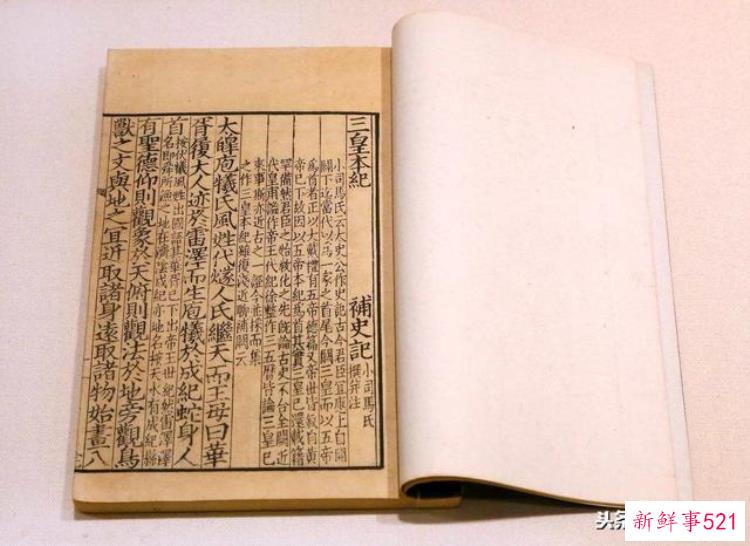 三皇本紀 補史記 小司馬氏
撰并注
小司馬氏云太史公作史記古今君臣宜應上自開
闢下迄當代以爲一家之首尾今闕三皇而以五帝
爲首者正以大戴禮有五帝德篇又帝世皆叙自黃
帝已下故因以五帝本紀爲首其實三皇已還載籍
罕備然君臣之始教化之先旣論古史不合全闕近
代皇甫謐作帝王代紀徐整作三五曆皆論三皇已
來事斯亦近古之一證今並採而集
之作三皇本紀雖復淺近聊補闕云
太皡庖犧氏風姓代燧人氏繼天而王母曰華
胥履大人迹於雷澤而生庖犧於成紀蛇身人
首
按伏犧風姓出國語其華胥已下出帝王世紀然雷澤澤
名即舜所漁之地在濟陰成紀亦地名按天水有成紀縣
有聖德仰則觀象於天俯則觀法於地旁觀鳥
獸之文與地之宜近取諸身遠取諸物始畫八
头
新鲜事521